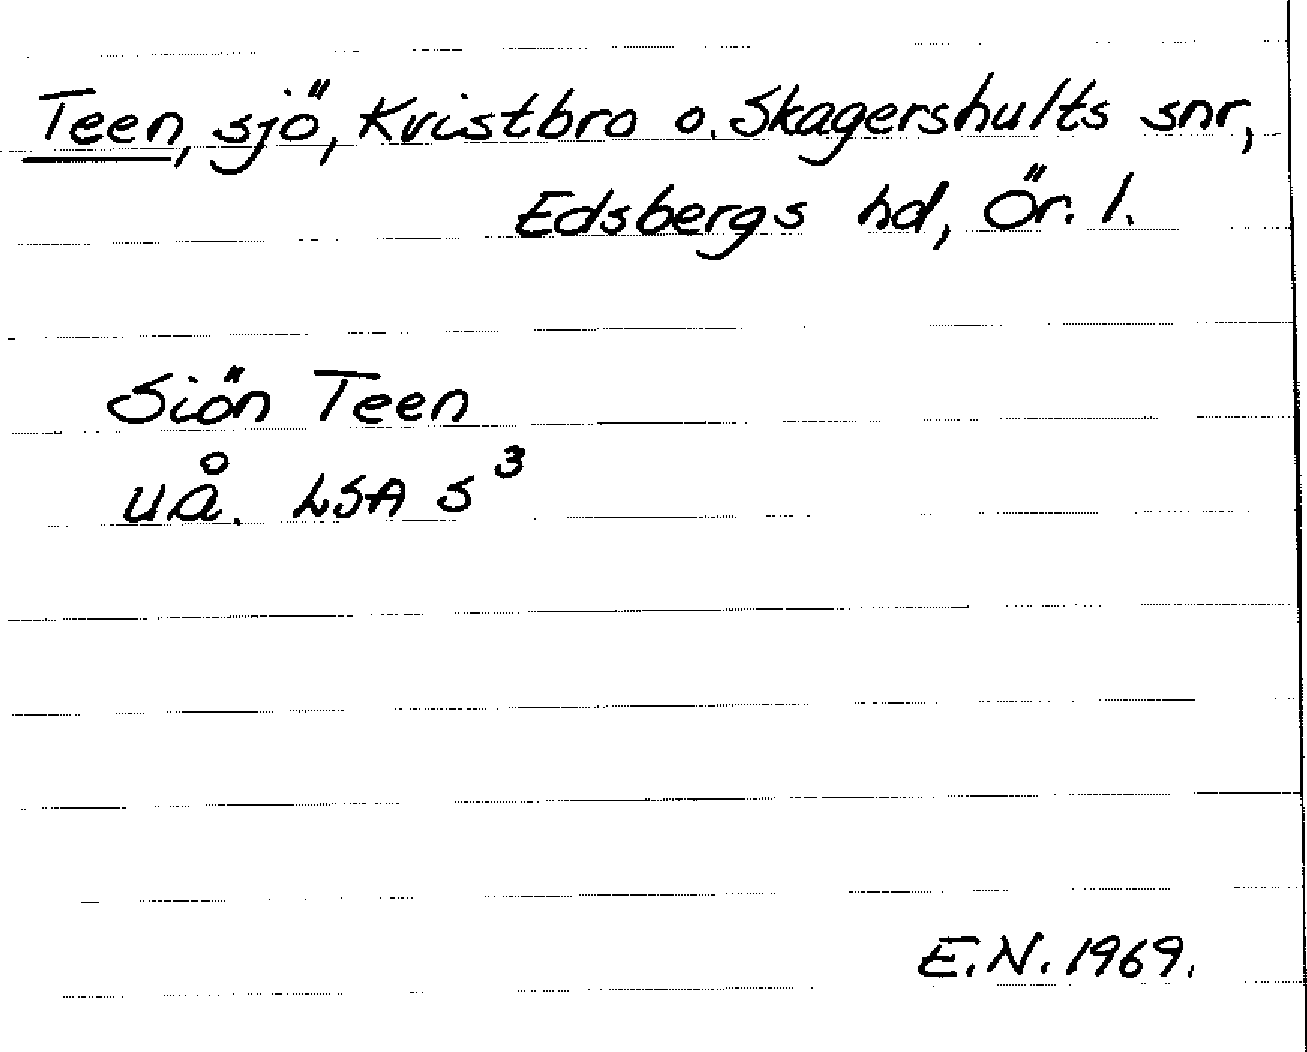 Teen, sjö, Kvistbro o. Skagershults snr,
Edsbergs hd, Ör. l.
Siön Teen
uå. LSA S³
E.N. 1969.